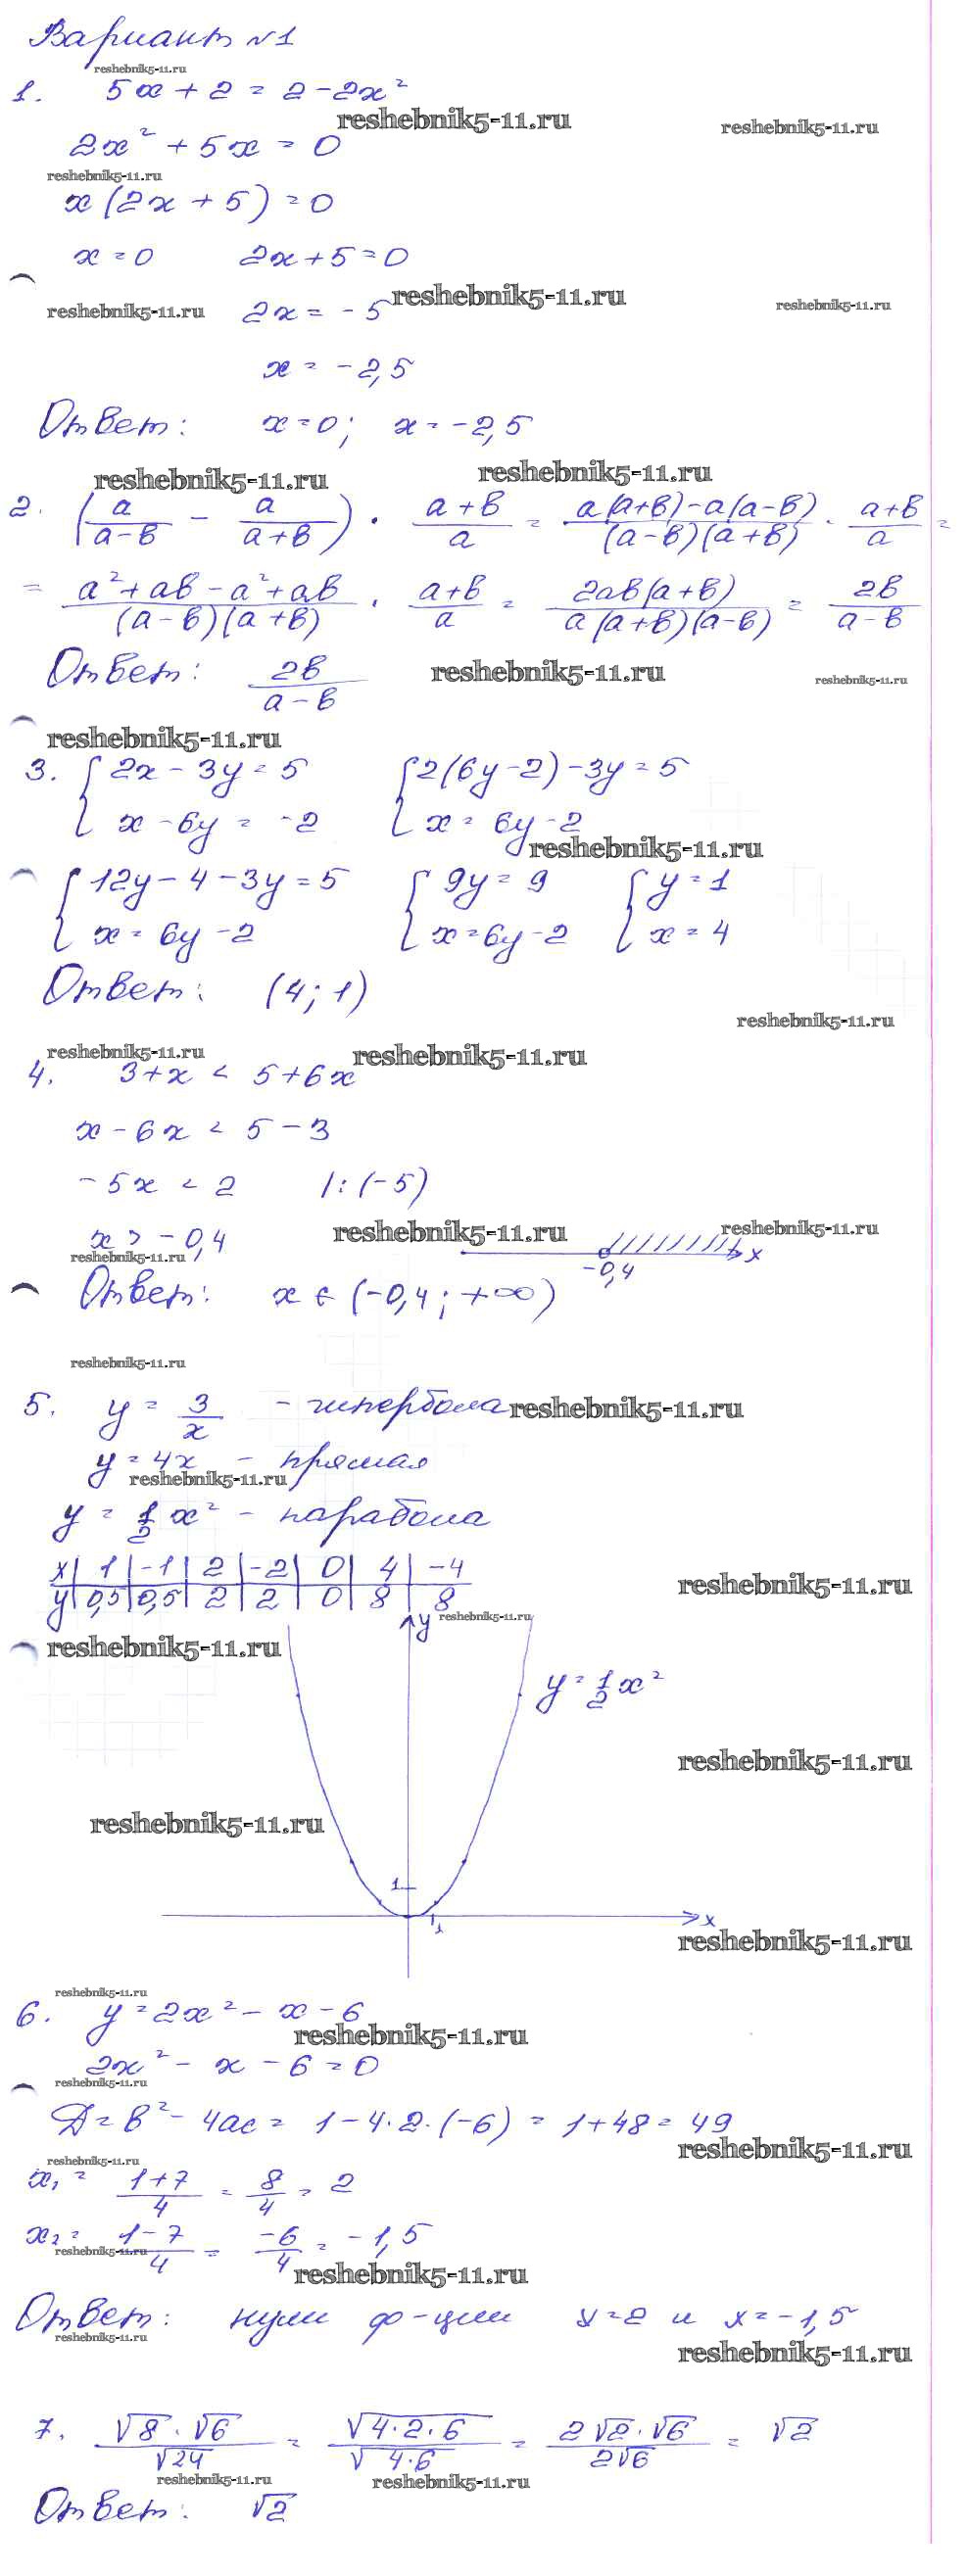 Вариант №1
reshebnik5-11.ru
1. 5x + 2 = 2 - 2x²
reshebnik5-11.ru reshebnik5-11.ru
2x² + 5x = 0
reshebnik5-11.ru
x(2x + 5) = 0
x = 0 2x + 5 = 0
reshebnik5-11.ru 2x = -5 reshebnik5-11.ru reshebnik5-11.ru
x = -2,5
Ответ: x = 0; x = -2,5
reshebnik5-11.ru reshebnik5-11.ru
2. (a/(a-b) - a/(a+b)) · (a+b)/a = (a(a+b)-a(a-b))/((a-b)(a+b)) · (a+b)/a =
= (a²+ab-a²+ab)/((a-b)(a+b)) · (a+b)/a = 2ab(a+b)/(a(a+b)(a-b)) = 2b/(a-b)
Ответ: 2b/(a-b) reshebnik5-11.ru reshebnik5-11.ru
reshebnik5-11.ru
3. { 2x - 3y = 5 { 2(6y-2) - 3y = 5
x - 6y = -2 x = 6y - 2
reshebnik5-11.ru
{ 12y - 4 - 3y = 5 { 9y = 9 { y = 1
x = 6y - 2 x = 6y - 2 x = 4
Ответ: (4; 1)
reshebnik5-11.ru
reshebnik5-11.ru reshebnik5-11.ru
4. 3 + x < 5 + 6x
x - 6x < 5 - 3
-5x < 2 |: (-5)
x > -0,4 reshebnik5-11.ru reshebnik5-11.ru
reshebnik5-11.ru -0,4 x
Ответ: x ∈ (-0,4; +∞)
reshebnik5-11.ru
5. y = 3/x - гипербола reshebnik5-11.ru
y = 4x - прямая
reshebnik5-11.ru
y = 1/2 x² - парабола
x | 1 | -1 | 2 | -2 | 0 | 4 | -4
reshebnik5-11.ru
y | 0,5 | 0,5 | 2 | 2 | 0 | 8 | 8
y reshebnik5-11.ru
reshebnik5-11.ru
y = 1/2 x²
reshebnik5-11.ru
reshebnik5-11.ru
1
1 x
reshebnik5-11.ru
reshebnik5-11.ru
6. y = 2x² - x - 6
reshebnik5-11.ru
2x² - x - 6 = 0
reshebnik5-11.ru
Д = b² - 4ac = 1 - 4·2·(-6) = 1 + 48 = 49
reshebnik5-11.ru
reshebnik5-11.ru
x₁ = (1+7)/4 = 8/4 = 2
x₂ = (1-7)/4 = -6/4 = -1,5
reshebnik5-11.ru
reshebnik5-11.ru
Ответ: нули ф-ции x = 2 и x = -1,5
reshebnik5-11.ru
reshebnik5-11.ru
7. (√8 · √6)/√24 = √(4·2·6)/√(4·6) = (2√2 · √6)/(2√6) = √2
reshebnik5-11.ru reshebnik5-11.ru
Ответ: √2